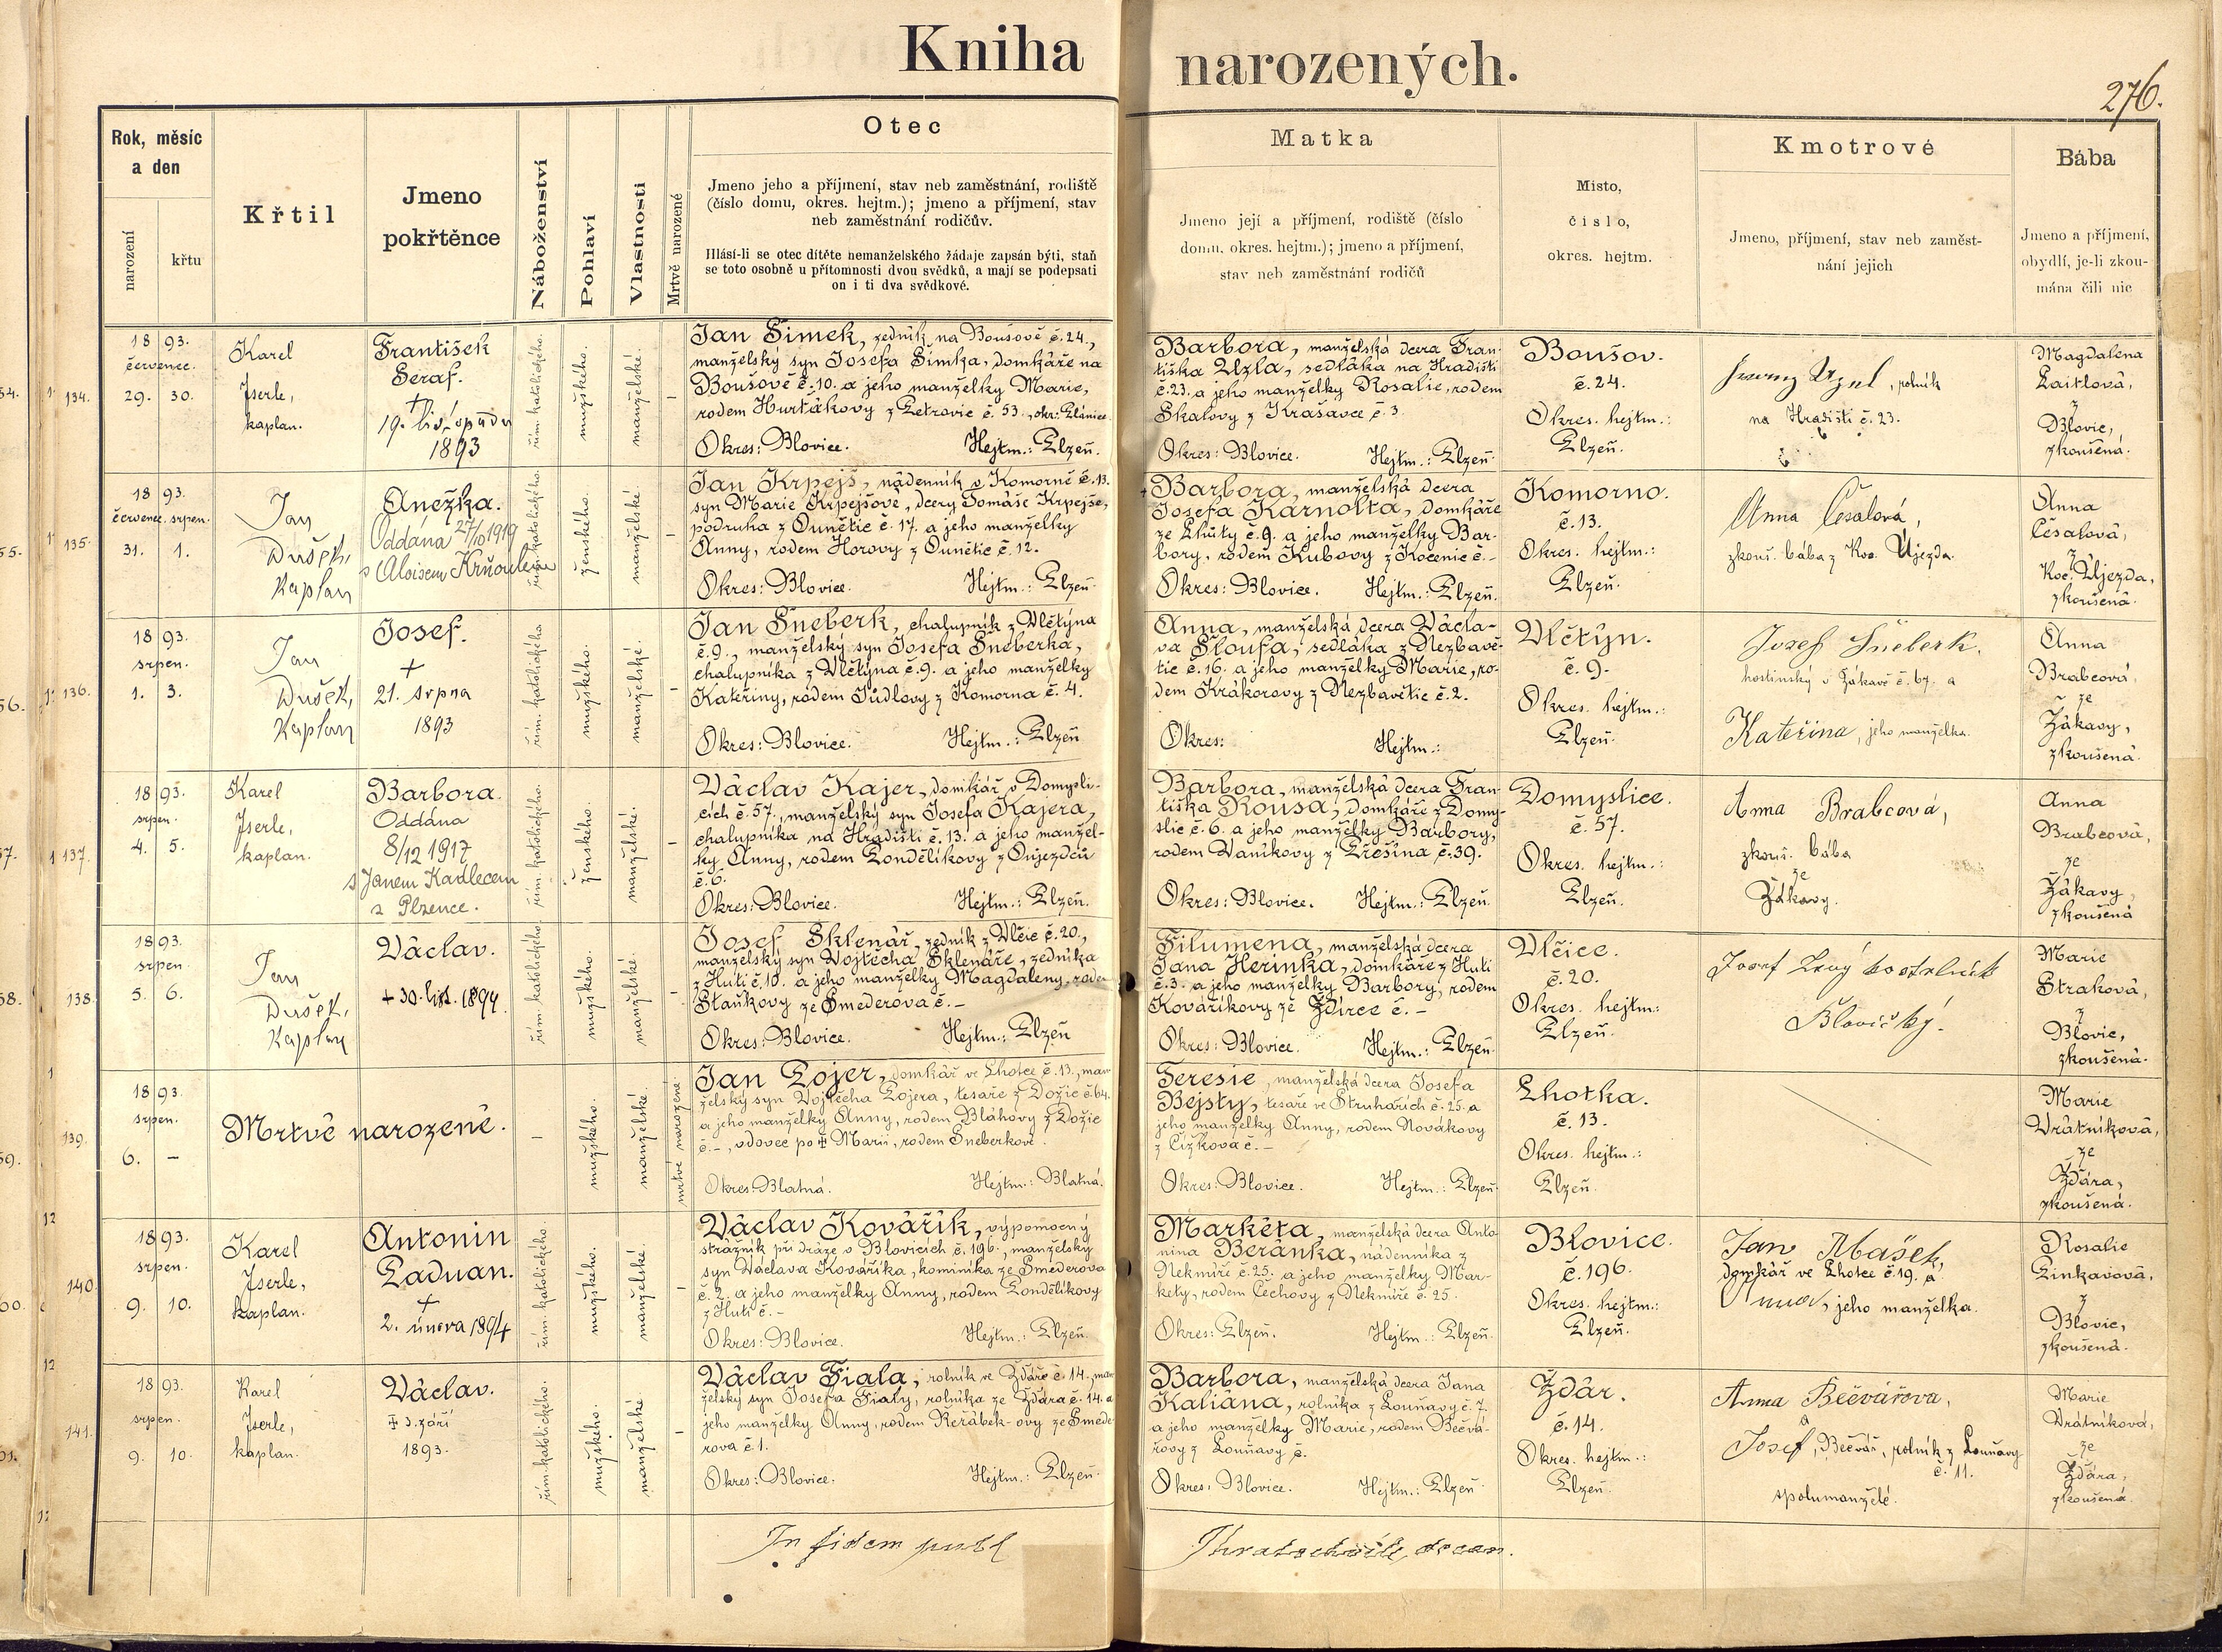 Kniha narozených.
276.
Rok, měsíc
a den
narození
křtu
Křtil
Jmeno
pokřtěnce
Náboženství
Pohlaví
Vlastnosti
Mrtvě narozené
Otec
Jmeno jeho a příjmení, stav neb zaměstnání, rodiště
(číslo domu, okres. hejtm.); jmeno a příjmení, stav
neb zaměstnání rodičův.
Hlásí-li se otec dítěte nemanželského žádaje zapsán býti, staň
se toto osobně u přítomnosti dvou svědků, a mají se podepsati
on i ti dva svědkové.
Matka
Jmeno její a příjmení, rodiště (číslo
domu, okres. hejtm.); jmeno a příjmení,
stav neb zaměstnání rodičů
Místo,
číslo,
okres. hejtm.
Kmotrové
Jmeno, příjmení, stav neb zaměst-
nání jejich
Bába
Jmeno a příjmení,
obydlí, je-li zkou-
mána čili nic
134.
18 93.
července.
29. 30.
Karel
Jserle,
kaplan.
František
Seraf.
+
19. listopadu
1893
řím. katolického.
mužského.
manželské.
–
Jan Šimek, zedník na Boušově č. 24.,
manželský syn Josefa Šimka, domkáře na
Boušově č. 10. a jeho manželky Marie,
rodem Hurtákovy z Petrovic č. 53., okr.: Plánice
Okres: Blovice. Hejtm.: Plzeň.
Barbora, manželská dcera Fran-
tiška Uzla, sedláka na Hradišti
č. 23. a jeho manželky Rosalie, rodem
Skalovy z Krašovce č. 3.
Okres: Blovice. Hejtm.: Plzeň.
Boušov.
č. 24.
Okres. hejtm.:
Plzeň.
Uzul, rolník
na Hradišti č. 23.
Magdalena
Paitlová,
z
Blovic,
zkoušená.
135.
18 93.
červenec. srpen.
31. 1.
Jan
Dušek,
Kaplan
Anežka.
Oddána 27/10 1919
s Aloisem Krňoulem
řím. katolického.
ženského.
manželské.
–
Jan Krpejš, nádenník v Komorně č. 13.
syn Marie Krpejšové, dcery Tomáše Krpejše,
podruha z Ounětic č. 17. a jeho manželky
Anny, rodem Horovy z Ounětic č. 12.
Okres: Blovice. Hejtm.: Plzeň.
Barbora, manželská dcera
Josefa Karnolta, domkáře
ze Lhůty č. 9. a jeho manželky Bar-
bory, rodem Kubovy z Kocenic č. –
Okres: Blovice. Hejtm.: Plzeň.
Komorno.
č. 13.
Okres. hejtm.:
Plzeň.
Anna Česalová,
zkouš. bába z Koc. Újezda.
Anna
Česalová,
z
Koc. Újezda,
zkoušená.
136.
18 93.
srpen.
1. 3.
Jan
Dušek,
Kaplan
Josef.
+
21. srpna
1893
řím. katolického
mužského.
manželské.
–
Jan Šneberk, chalupník z Vlčtýna
č. 9., manželský syn Josefa Šneberka,
chalupníka z Vlčtýna č. 9. a jeho manželky
Kateřiny, rodem Jůdlovy z Komorna č. 4.
Okres: Blovice. Hejtm.: Plzeň
Anna, manželská dcera Václa-
va Sloufa, sedláka z Nezbavě-
tic č. 16. a jeho manželky Marie, ro-
dem Krákorovy z Nezbavětic č. 2.
Okres: Hejtm.:
Vlčtýn.
č. 9.
Okres. hejtm.:
Plzeň.
Josef Šneberk,
hostinský v Žákavě č. 67. a
Kateřina, jeho manželka.
Anna
Brabcová,
ze
Žákavy,
zkoušená.
137.
18 93.
srpen.
4. 5.
Karel
Jserle,
kaplan.
Barbora.
Oddána
8/12 1917
s Janem Kadlecem
z Plzence.
řím. katolického.
ženského.
manželské.
–
Václav Kajer, domkář v Domysli-
cích č. 57., manželský syn Josefa Kajera,
chalupníka na Hradišti č. 13. a jeho manžel-
ky Anny, rodem Pondělíkovy z Oujezdců
č. 6.
Okres: Blovice. Hejtm.: Plzeň.
Barbora, manželská dcera Fran-
tiška Rousa, domkáře z Domy-
slic č. 6. a jeho manželky Barbory,
rodem Vaníkovy z Přešína č. 39.
Okres: Blovice. Hejtm.: Plzeň.
Domyslice.
č. 57.
Okres. hejtm.:
Plzeň.
Anna Brabcová,
zkouš. bába
ze
Žákavy.
Anna
Brabcová,
ze
Žákavy,
zkoušená
138.
18 93.
srpen
5. 6.
Jan
Dušek,
Kaplan
Václav.
+ 30. list. 1894.
řím. katolického.
mužského.
manželské.
–
Josef Sklenář, zedník z Vlčic č. 20.,
manželský syn Vojtěcha Sklenáře, zedníka
z Hutí č. 10. a jeho manželky Magdaleny, rodem
Staňkovy ze Směderova č. –
Okres: Blovice. Hejtm.: Plzeň
Filumena, manželská dcera
Jana Heřinka, domkáře z Hutí
č. 3. a jeho manželky Barbory, rodem
Kovaříkovy ze Ždírce č. –
Okres: Blovice. Hejtm.: Plzeň.
Vlčice.
č. 20.
Okres. hejtm.:
Plzeň.
Josef kostelník
Blovický.
Marie
Straková,
z
Blovic,
zkoušená.
139.
18 93.
srpen.
6. –
Mrtvě narozené.
–
mužského.
manželské.
mrtvě narozené.
Jan Pojer, domkář ve Lhotce č. 13., man-
želský syn Vojtěcha Pojera, tesaře z Dožic č. 64.
a jeho manželky Anny, rodem Bláhovy z Dožic
č. –, vdovec po + Marii, rodem Šneberkové.
Okres: Blatná. Hejtm.: Blatná.
Teresie, manželská dcera Josefa
Bejsty, tesaře ve Struhařích č. 25. a
jeho manželky Anny, rodem Novákovy
z Čížkova č. –
Okres: Blovice. Hejtm.: Plzeň.
Lhotka.
č. 13.
Okres. hejtm.:
Plzeň.
Marie
Vrátníková,
ze
Ždára,
zkoušená.
140.
18 93.
srpen.
9. 10.
Karel
Jserle,
kaplan.
Antonin
Paduan.
+
2. února 1894
řím. katolického.
mužského.
manželské.
–
Václav Kovářík, výpomocný
strážník při dráze v Blovicích č. 196., manželský
syn Václava Kováříka, kominíka ze Směderova
č. 2. a jeho manželky Anny, rodem Pondělíkovy
z Hutí č. –
Okres: Blovice. Hejtm.: Plzeň.
Markéta, manželská dcera Anto-
nína Beránka, nádenníka z
Nekmíře č. 25. a jeho manželky Mar-
kety, rodem Čechovy z Nekmíře č. 25.
Okres: Plzeň. Hejtm.: Plzeň.
Blovice.
č. 196.
Okres. hejtm.:
Plzeň.
Jan Mašek,
domkář ve Lhotce č. 19. a
jeho manželka.
Rosalie
Pinkavová,
z
Blovic,
zkoušená.
141.
18 93.
srpen.
9. 10.
Karel
Jserle,
kaplan.
Václav.
+ 3. září
1893.
řím. katolického.
mužského.
manželské
–
Václav Fiala, rolník ve Ždáře č. 14., man-
želský syn Josefa Fialy, rolníka ze Ždára č. 14. a
jeho manželky Anny, rodem Řeřábek-ovy ze Směde-
rova č. 1.
Okres: Blovice. Hejtm.: Plzeň.
Barbora, manželská dcera Jana
Kaliána, rolníka z Louňavy č. 7.
a jeho manželky Marie, rodem Bečvá-
řovy z Louňavy č.
Okres: Blovice. Hejtm.: Plzeň
Ždár.
č. 14.
Okres. hejtm.:
Plzeň.
Anna Bečvářova,
a
Josef Bečvář, rolník z Louňavy
č. 11.
spolumanželé.
Marie
Vrátníková,
ze
Ždára,
zkoušená.
In fidem publ